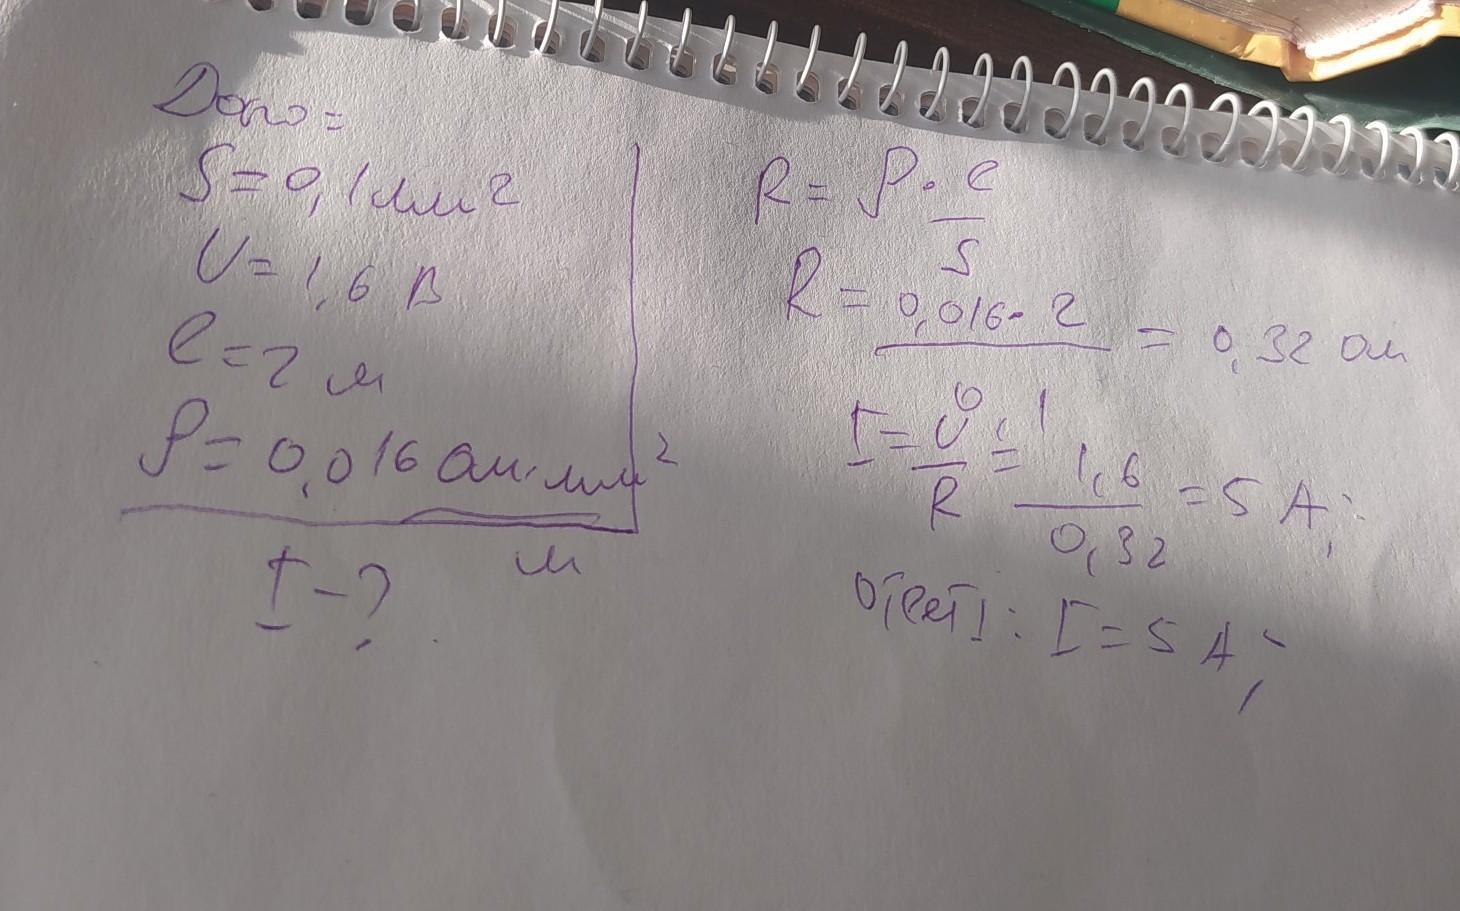 Дано=
S=0,1мм²
U=1,6 В
l=2 м
ρ=0,016 Ом·мм²
м
I-?
R=ρ·l
S
R=0,016·2 = 0,32 Ом
0,1
I=U = 1,6 =5 А;
R 0,32
Ответ: I=5 А;